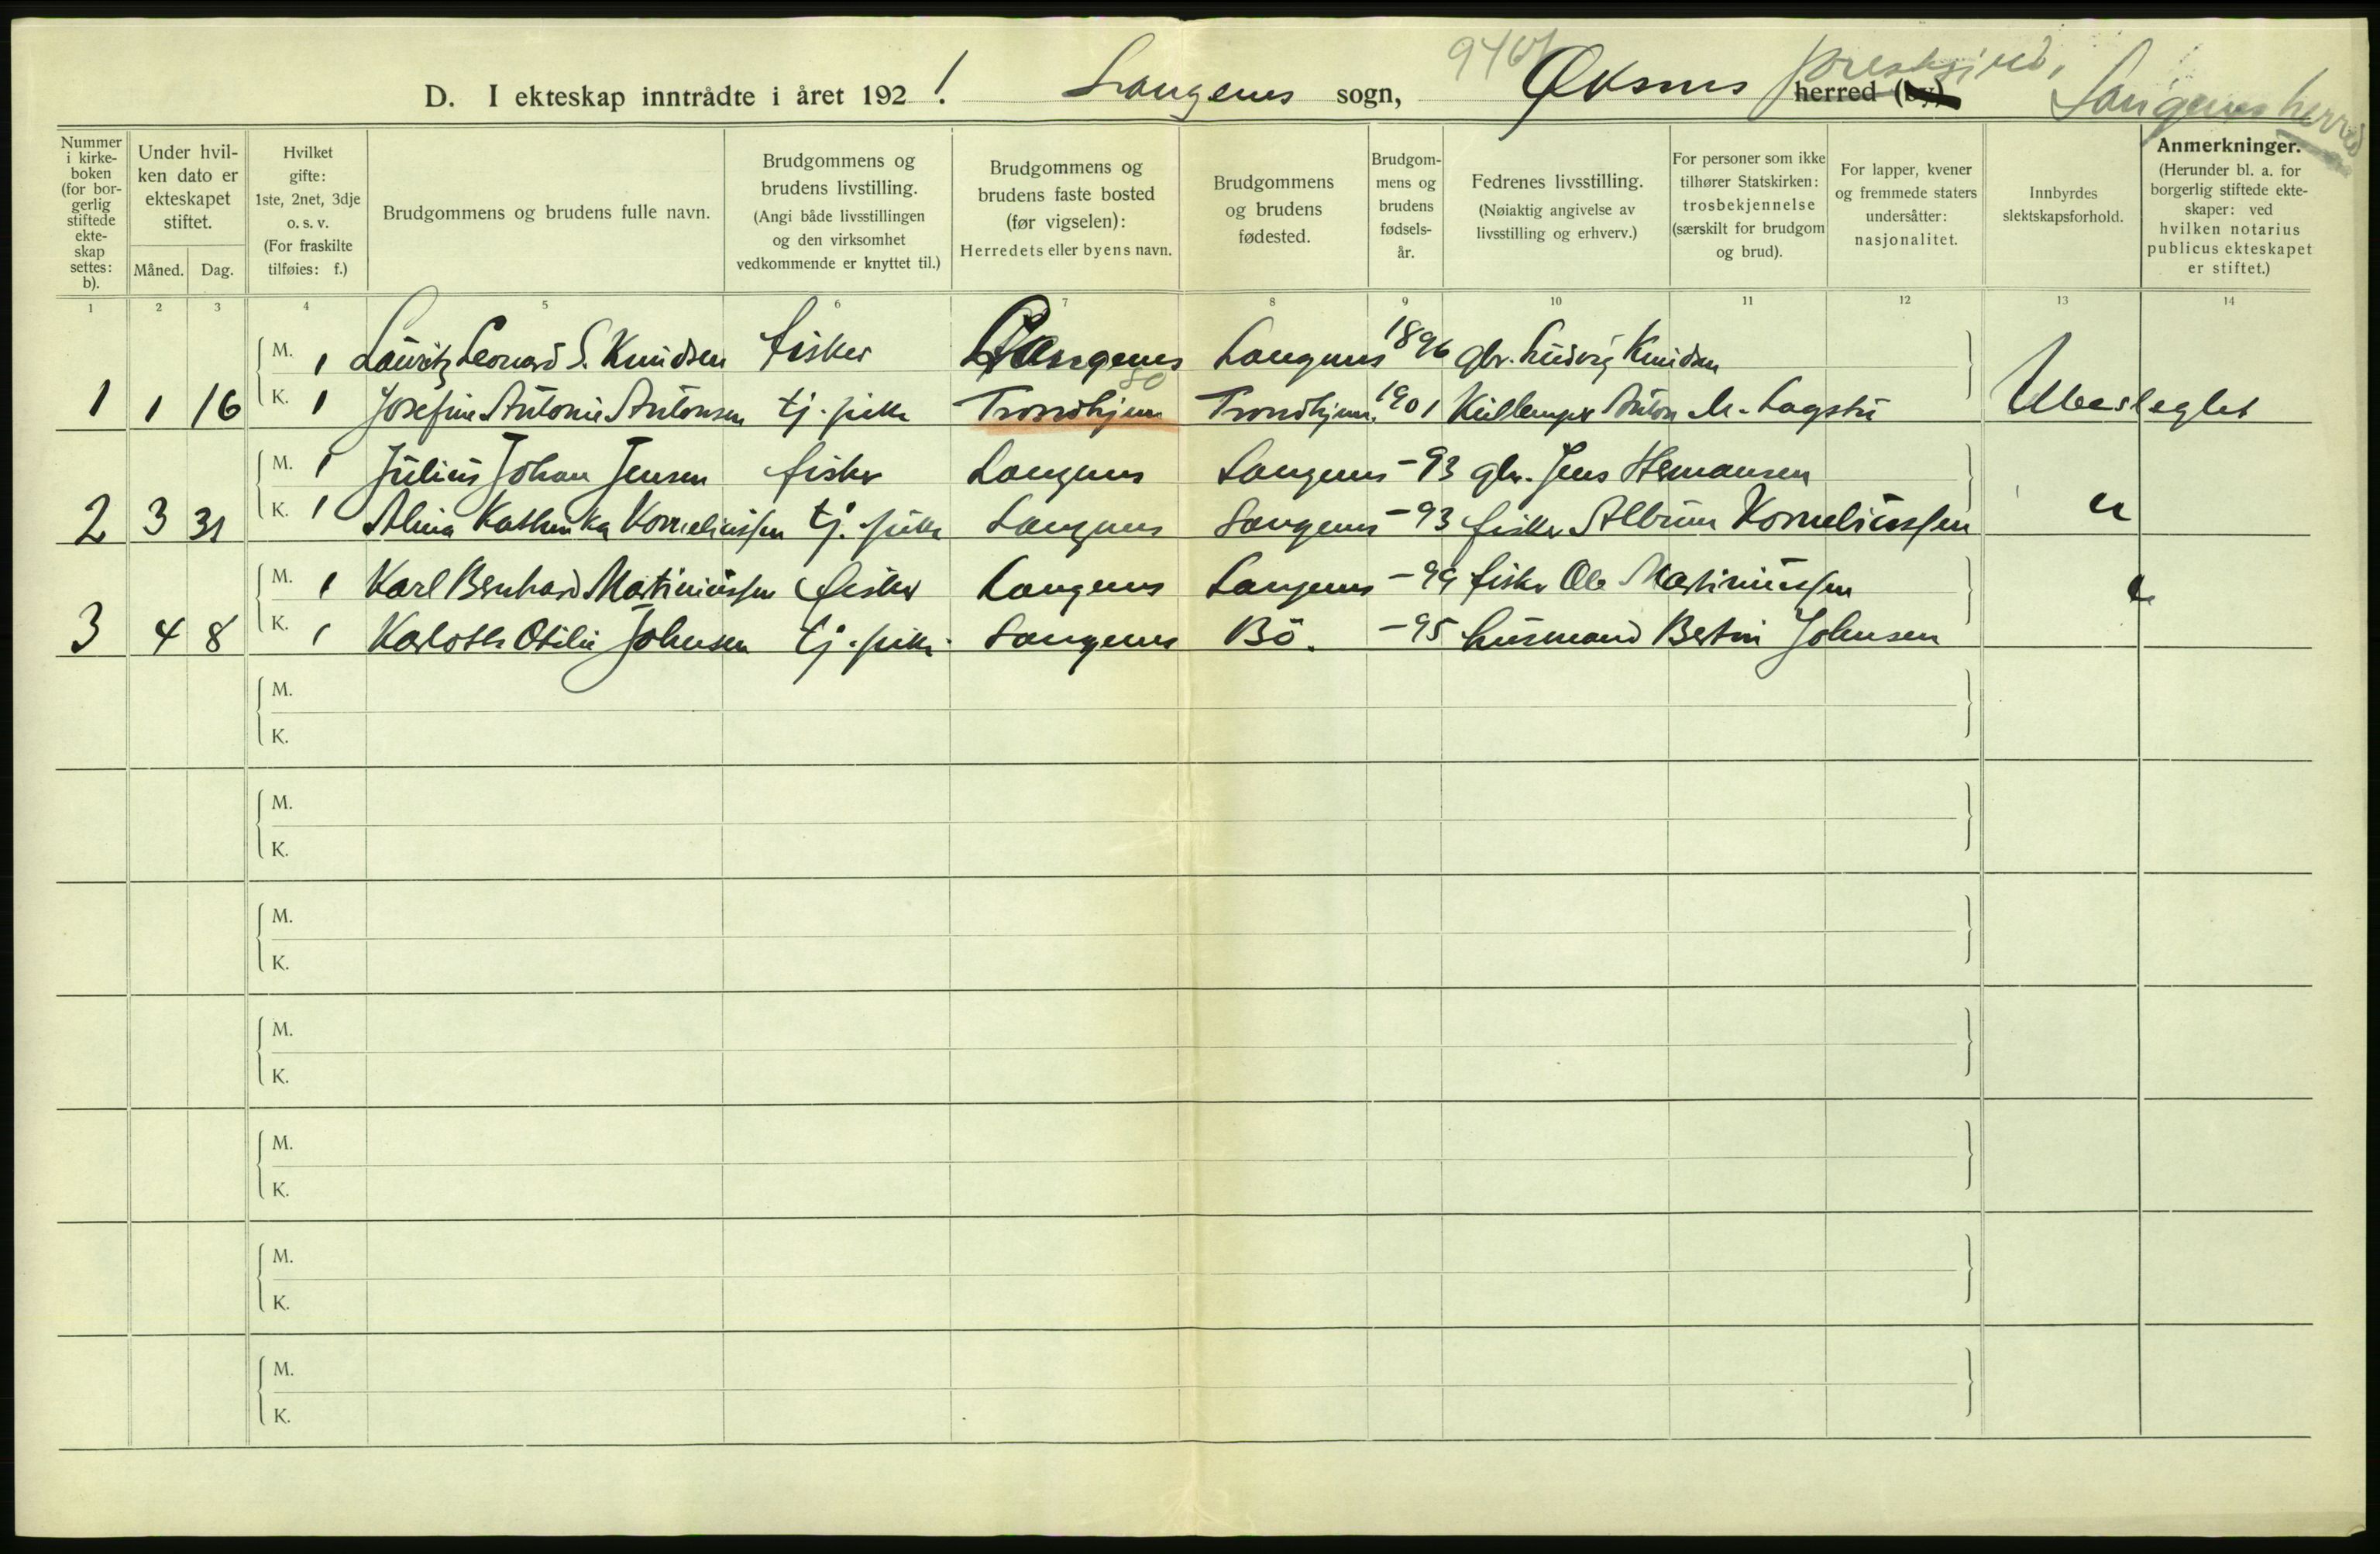 D. I ekteskap inntrådte i året 1921. Langenes sogn, 940I Øksnes herred (by) prestegjeld, Langenes herred
Nummer i kirkeboken (for borgerlig stiftede ekteskap settes: b).
Under hvilken dato er ekteskapet stiftet.
Måned. Dag.
Hvilket gifte: 1ste, 2net, 3dje o. s. v. (For fraskilte tilføies: f.)
Brudgommens og brudens fulle navn.
Brudgommens og brudens livstilling. (Angi både livsstillingen og den virksomhet vedkommende er knyttet til.)
Brudgommens og brudens faste bosted (før vigselen): Herredets eller byens navn.
Brudgommens og brudens fødested.
Brudgommens og brudens fødselsår.
Fedrenes livsstilling. (Nøiaktig angivelse av livsstilling og erhverv.)
For personer som ikke tilhører Statskirken: trosbekjennelse (særskilt for brudgom og brud).
For lapper, kvener og fremmede staters undersåtter: nasjonalitet.
Innbyrdes slektskapsforhold.
Anmerkninger. (Herunder bl. a. for borgerlig stiftede ekteskaper: ved hvilken notarius publicus ekteskapet er stiftet.)
1 2 3 4 5 6 7 8 9 10 11 12 13 14
M. 1 Lauritz Leonard S. Knudsen fisker Langenes Langenes 1896 gbr. Ludvig Knudsen
1 1 16 K. 1 Josefine Antonie Antonsen tj. pike Trondhjem Trondhjem 1901 Anton M. Lagstu Ubeslegtet
M. 1 Julius Johan Jensen fisker Langenes Langenes -93 gbr. Jens Hemansen
2 3 31 K. 1 Alma Kathinka Korneliussen tj. pike Langenes Langenes -93 fisker Korneliussen "
M. 1 Karl Bernhard Martinussen fisker Langenes Langenes -99 fisker Ole Martinussen "
3 4 8 K. 1 Karlotte Otilie Johnsen tj. pike Langenes Bö. -95 husmand Bertin Johnsen
M.
K.
M.
K.
M.
K.
M.
K.
M.
K.
M.
K.
M.
K.